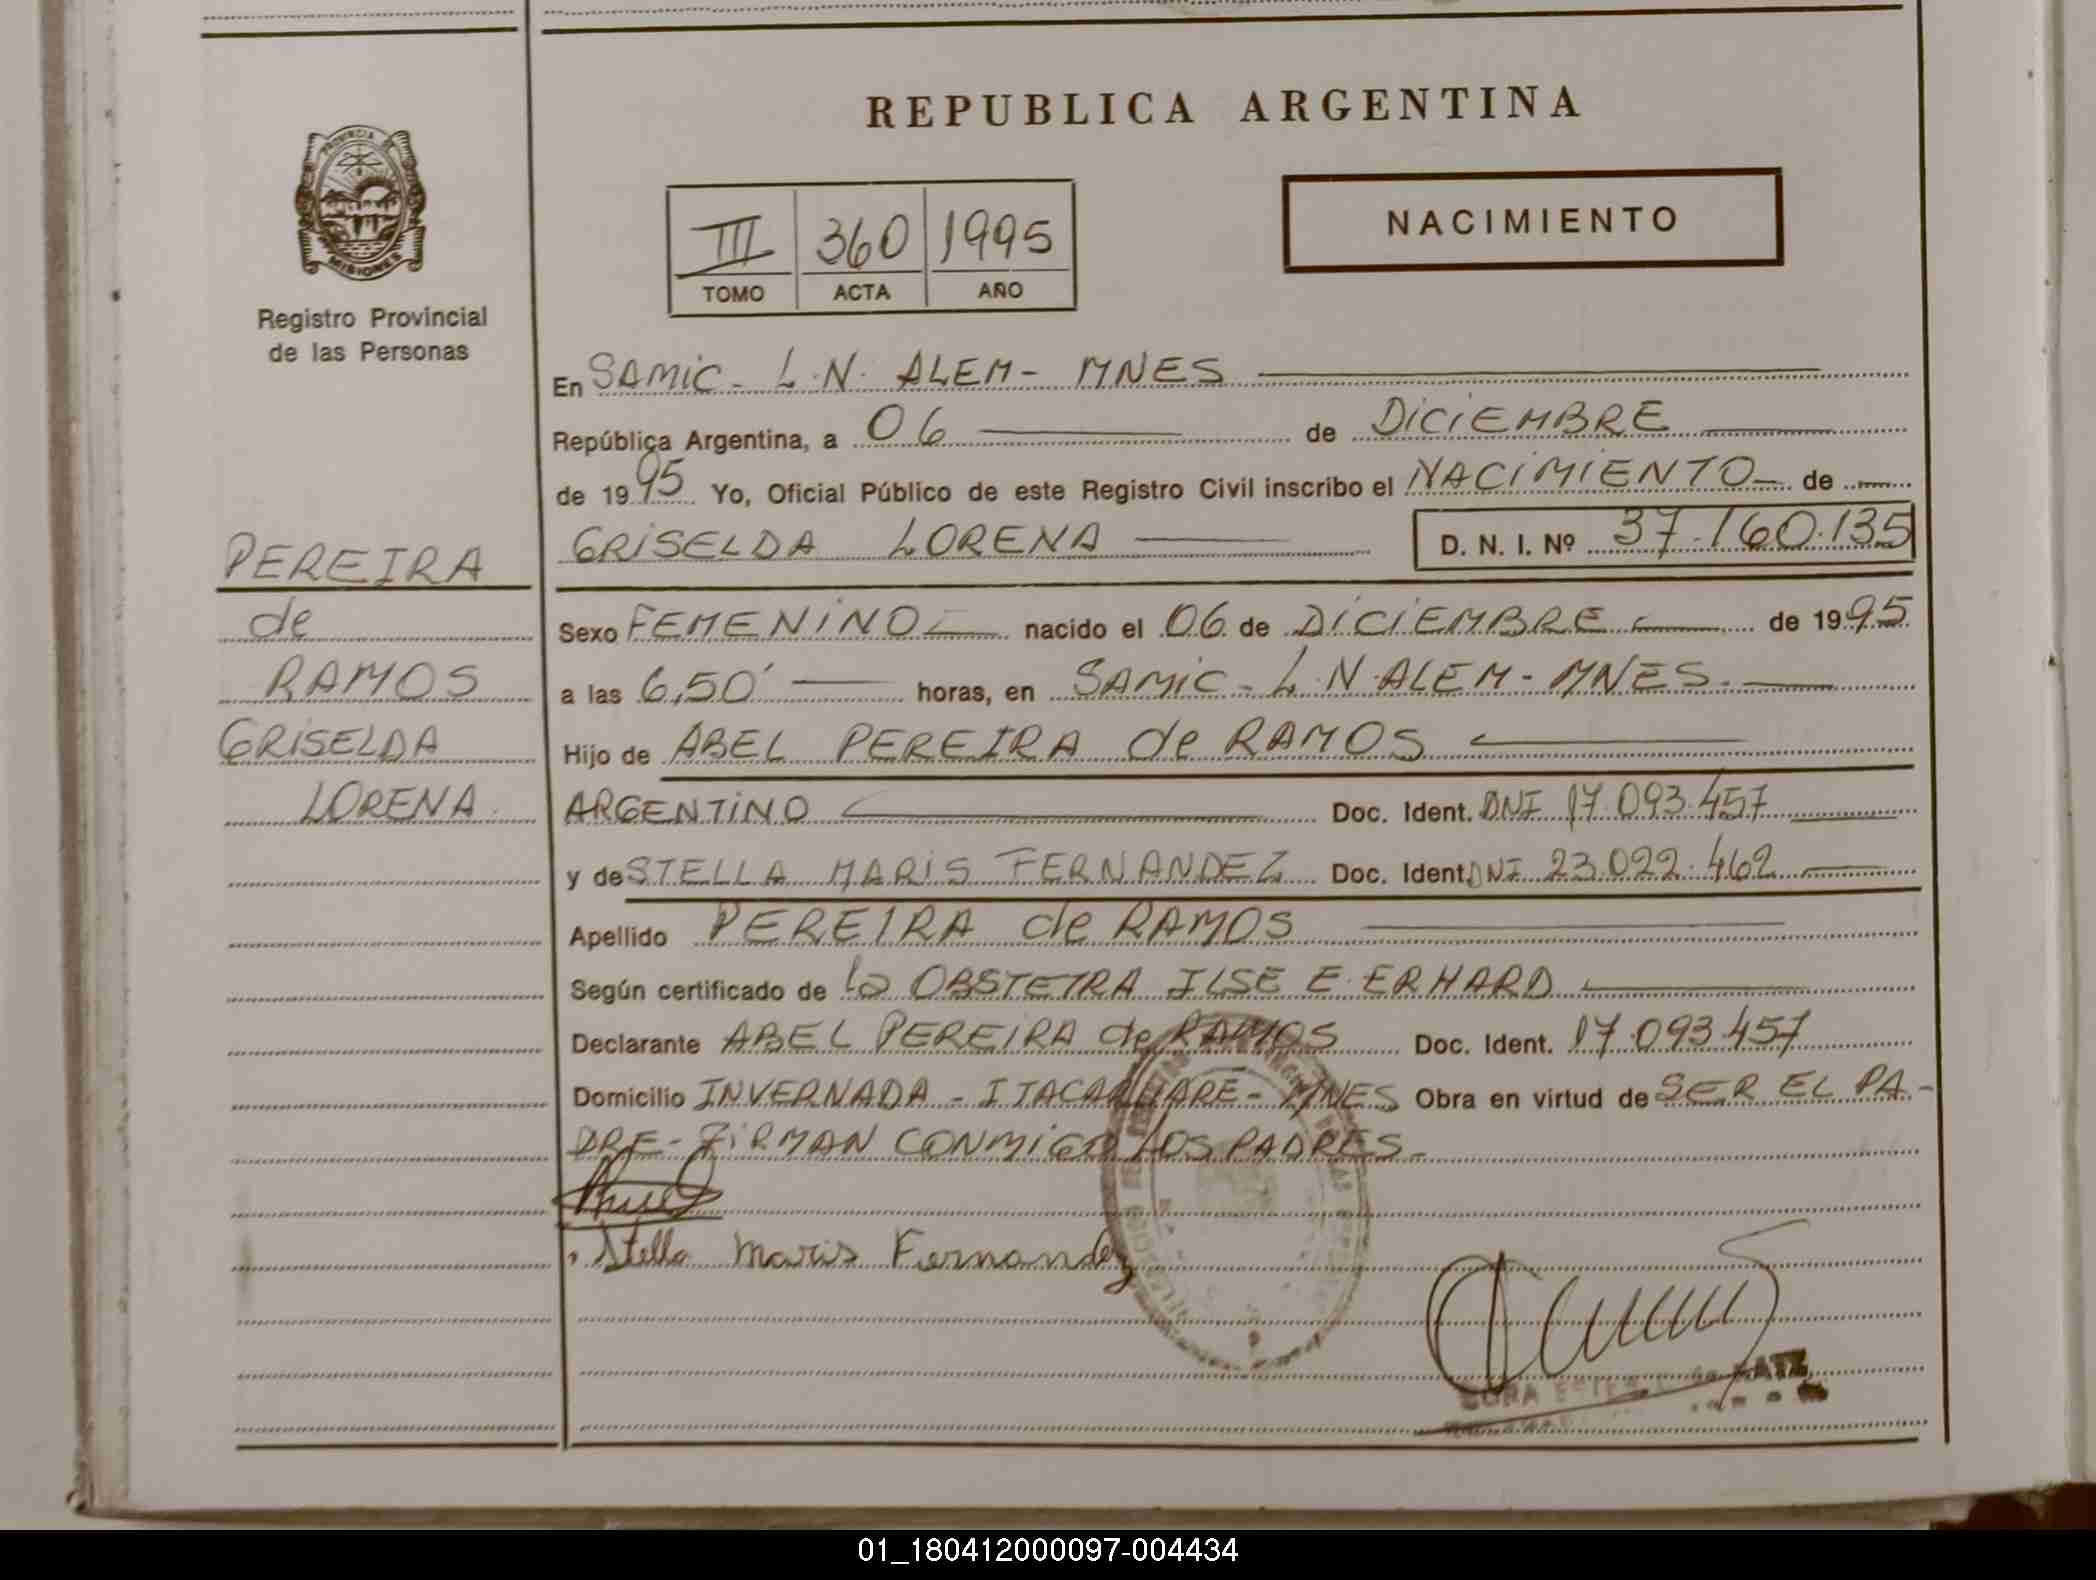 REPUBLICA ARGENTINA
PROVINCIA DE
MISIONES
Registro Provincial
de las Personas
III 360 1995
TOMO ACTA AÑO
NACIMIENTO
En SAMIC - L.N. ALEM - MNES
República Argentina, a 06 de DICIEMBRE
de 1995 Yo, Oficial Público de este Registro Civil inscribo el NACIMIENTO de
GRISELDA LORENA D. N. I. Nº 37.160.135
PEREIRA
de
RAMOS
GRISELDA
LORENA.
Sexo FEMENINO nacido el 06 de DICIEMBRE de 1995
a las 6,50' horas, en SAMIC - L.N. ALEM - MNES.
Hijo de ABEL PEREIRA de RAMOS
ARGENTINO Doc. Ident. DNI 17.093.457
y de STELLA MARIS FERNANDEZ Doc. Ident. DNI 23.022.462
Apellido PEREIRA de RAMOS
Según certificado de la OBSTETRA ILSE E. ERHARD
Declarante ABEL PEREIRA de RAMOS Doc. Ident. 17.093.457
Domicilio INVERNADA - ITACARUARE - MNES Obra en virtud de SER EL PA-
DRE - FIRMAN CONMIGO LOS PADRES.
Stella Maris Fernandez
01_180412000097-004434